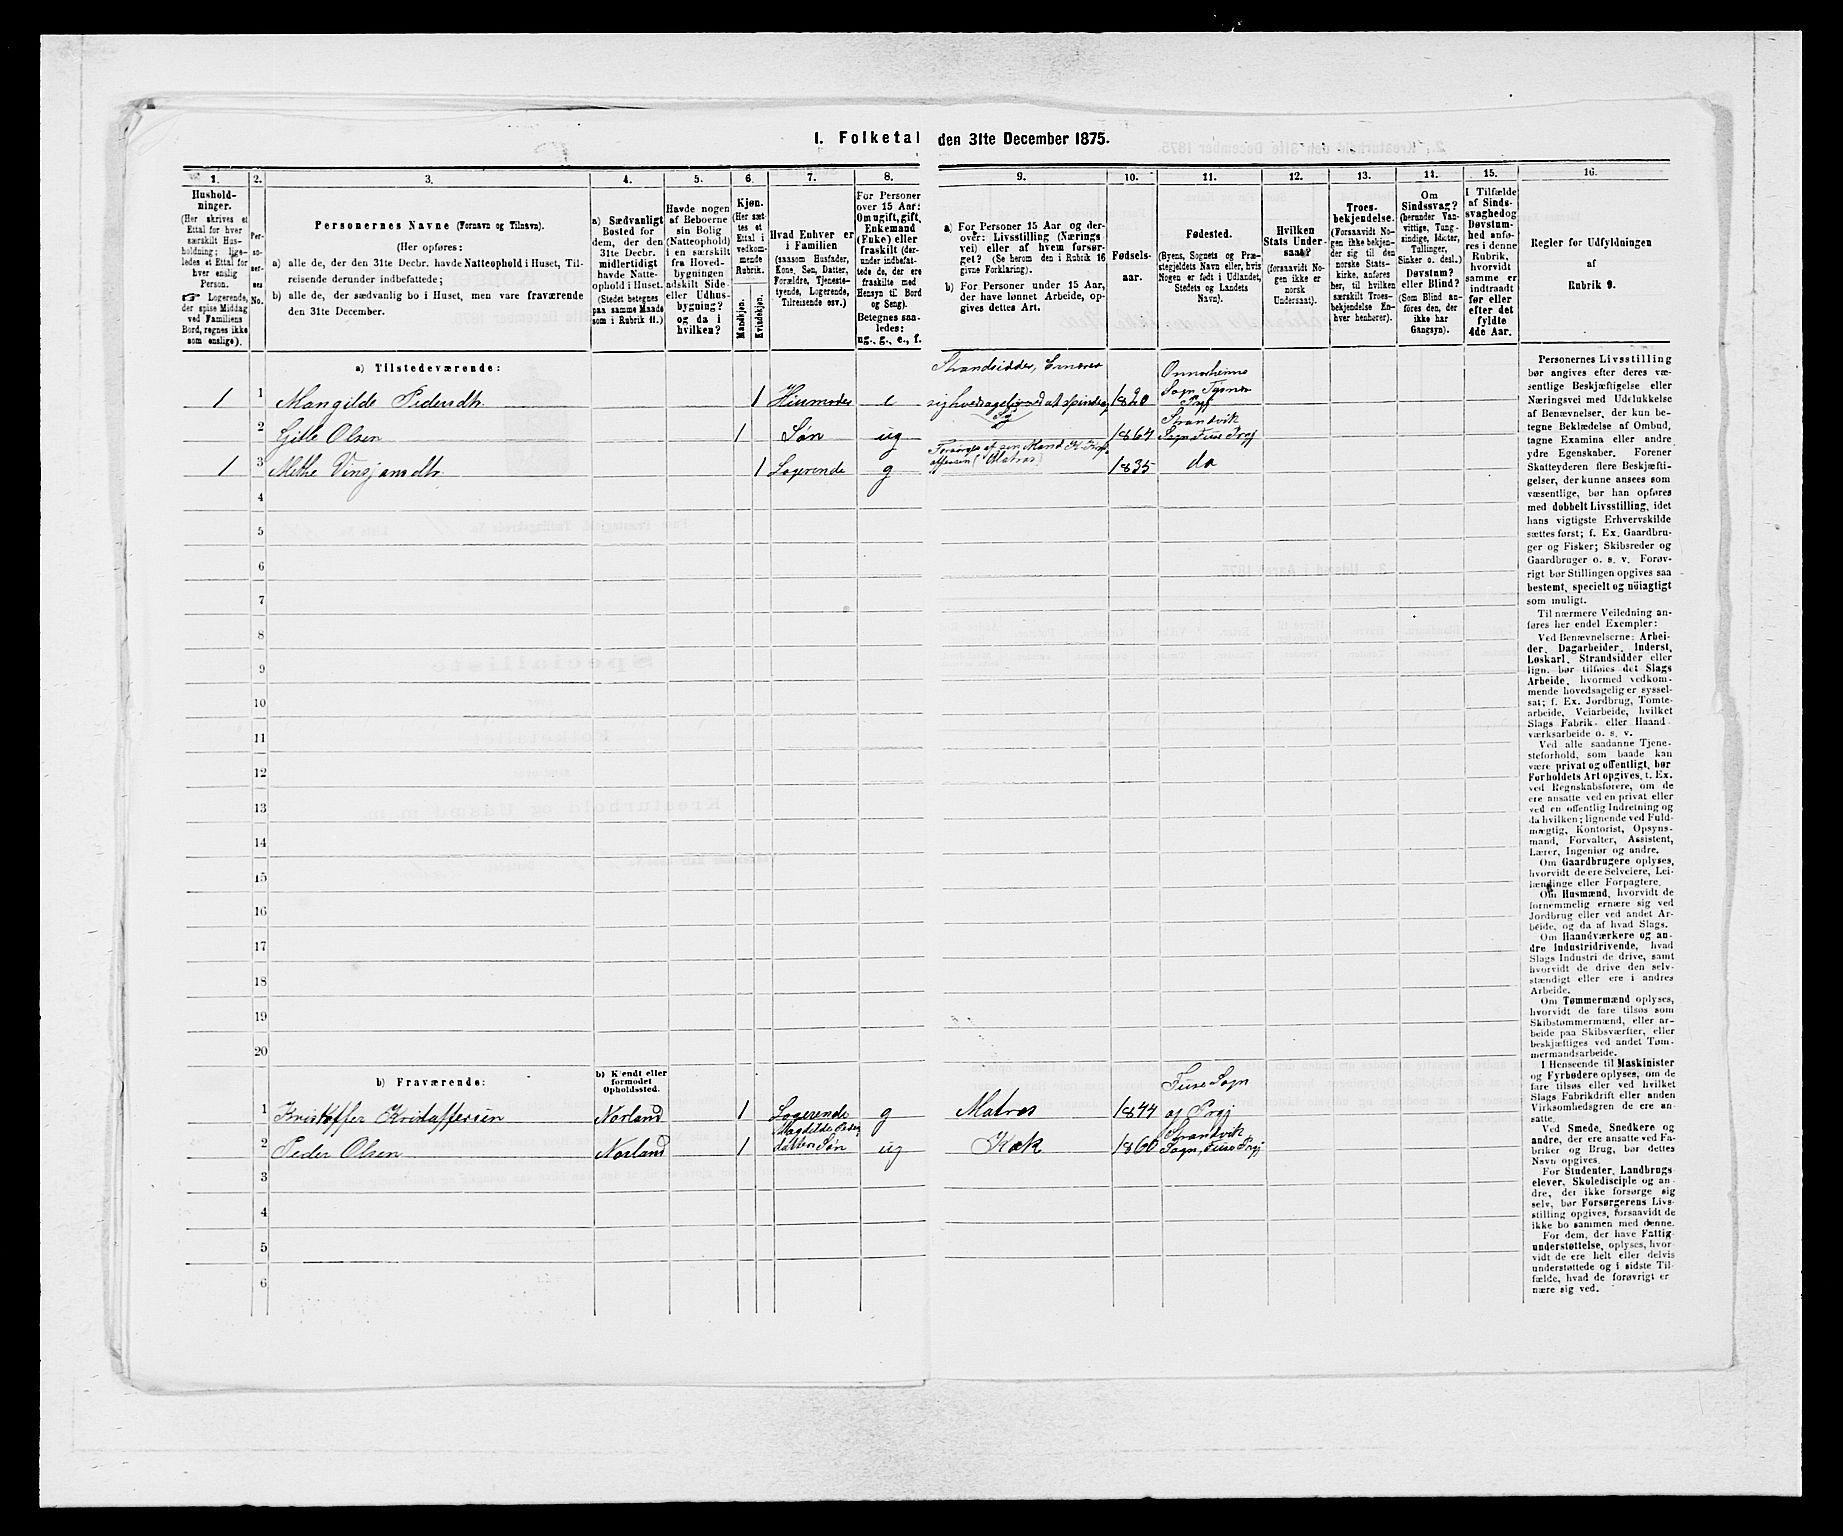 I. Folketal den 31te December 1875.
1. 2. 3. 4. 5. 6. 7. 8. 9. 10. 11. 12. 13. 14. 15. 16.
Hushold-
ninger.
(Her skrives et
Ettal for hver
særskilt Hus-
holdning; lige-
ledes et Ettal for
hver enslig
Person.
☞ Logerende,
der spise Middag
ved Familiens
Bord, regnes ikke
som enslige).
Per-
so-
ner-
nes
No.
Personernes Navne (Fornavn og Tilnavn).
(Her opføres:
a) alle de, der den 31te Decbr. havde Natteophold i Huset, Til-
reisende derunder indbefattede;
b) alle de, der sædvanlig bo i Huset, men vare fraværende
den 31te December.
a) Sædvanligt
Bosted for
dem, der den
31te Decbr.
midlertidigt
havde Natte-
ophold i Huset.
(Stedet betegnes
paa samme Maade
som i Rubrik 11.)
Havde nogen
af Beboerne
sin Bolig
(Natteophold)
i en særskilt
fra Hoved-
bygningen
adskilt Side-
eller Udhus-
bygning?
og da i
hvilken?
Kjøn.
(Her sæt-
tes et
Ettal i
vedkom-
mende
Rubrik.
Mandkjøn.
Kvindekjøn.
Hvad Enhver er
i Familien
(saasom Husfader,
Kone, Søn, Datter,
Forældre, Tjeneste-
tyende, Logerende,
Tilreisende osv.)
For Personer
over 15 Aar:
Om ugift, gift,
Enkemand
(Enke) eller
fraskilt (der-
under indbefat-
tede de, der ere
fraskilte med
Hensyn til Bord
og Seng).
Betegnes saa-
ledes:
ug., g., e., f.
a) For Personer 15 Aar og der-
over: Livsstilling (Nærings-
vei) eller af hvem forsør-
get? (Se herom den i Rubrik 16
givne Forklaring).
b) For Personer under 15 Aar,
der have lønnet Arbeide, op-
gives dettes Art.
Fødsels-
aar.
Fødested.
(Byens, Sognets og Præ-
stegjeldets Navn eller, hvis
Nogen er født i Udlandet,
Stedets og Landets
Navn).
Hvilken
Stats Under-
saat?
(forsaavidt No-
gen ikke er
norsk
Undersaat).
Troes-
bekjendelse.
(Forsaavidt No-
gen ikke bekjen-
der sig til den
norske Stats-
kirke, anføres
her, til hvilken
særskilt Troes-
bekjendelse En-
hver henhører).
Om
Sindssvag?
(herunder Van-
vittige, Tung-
sindige, Idioter,
Tullinger,
Sinker o. desl.)
Døvstum?
eller Blind?
(Som Blind an-
føres den, der
ikke har
Gangsyn).
I Tilfælde
af Sinds-
svaghed og
Døvstum-
hed anfø-
res i denne
Rubrik,
hvorvidt
samme er
indtraadt
før eller
efter det
fyldte
4de Aar.
Regler for Udfyldningen
af
Rubrik 9.
a) Tilstedeværende:
Strandsidder, Ernærer
Onnarheims
1 1 Mangilde Pedersdtr 1 Husmoder e sig hovedsagelig ved at spinde og 1820 Sogn Tysnes
Sy Prgj
Strandvik
2 Gitle Olsen 1 Søn ug 1864 Sogn, Fuse Prgj
Forsørges af sin Mand K. Krist-
offersen (Matros)
1 3 Methe 1 Logerende g 1835 do
4
5
6
7
8
9
10
11
12
13
14
15
16
17
18
19
20
b) Fraværende:
b) Kjendt eller
formodet
Opholdssted.
Fuse Sogn
1 Kristoffer Kristoffersen Norland 1 Logerende g Matros 1844 og Prgj
Magdilde Peders
Strandvik
2 Peder Olsen Norland 1 datters Søn ug Kok 1860 Sogn, Fuse Prgj
3
4
5
6
Personernes Livsstilling
bør angives efter deres væ-
sentlige Beskjæftigelse eller
Næringsvei med Udelukkelse
af Benævnelser, der kun be-
tegne Beklædelse af Ombud,
tagne Examina eller andre
ydre Egenskaber. Forener
Skatteyderen flere Beskjæfti-
gelser, der kunne ansees som
væsentlige, bør han opføres
med dobbelt Livsstilling, idet
hans vigtigste Erhvervskilde
sættes først; f. Ex. Gaardbru-
ger og Fisker; Skibsreder og
Gaardbruger o. s. v. Forøv-
rigt bør Stillingen opgives saa
bestemt, specielt og nøiagtigt
som muligt.
Til nærmere Veiledning an-
føres her endel Exempler:
Ved Benævnelserne: Arbei-
der, Dagarbeider, Inderst,
Løskarl, Strandsidder eller
lign. bør tilføies det Slags
Arbeide, hvormed vedkom-
mende hovedsagelig er syssel-
sat; f. Ex. Jordbrug, Tomte-
arbeide, Veiarbeide, hvilket
Slags Fabrik- eller Haand-
værksarbeide o. s. v.
Ved alle saadanne Tjene-
steforhold, som baade kan
være privat og offentligt, bør
Forholdets Art opgives, t. Ex.
ved Regnskabsførere, om de
ere ansatte ved en privat eller
ved en offentlig Indretning og
da hvilken; lignende ved Fuld-
mægtig, Kontorist, Opsyns-
mand, Forvalter, Assistent,
Lærer, Ingeniør og andre.
Om Gaardbrugere oplyses,
hvorvidt de ere Selveiere, Lei-
lændinge eller Forpagtere.
Om Husmænd, hvorvidt de
fornemmelig ernære sig ved
Jordbrug eller ved andet Ar-
beide, og da af hvad Slags.
Om Haandværkere og an-
dre Industridrivende, hvad
Slags Industri de drive, samt
hvorvidt de drive den selv-
stændigt eller ere i andres
Arbeide.
Om Tømmermænd oplyses,
hvorvidt de fare tilsøs som
Skibstømmermænd, eller ar-
beide paa Skibsværfter, eller
beskjæftiges ved andet Tøm-
mermandsarbeide.
I Henseende til Maskinister
og Fyrbødere oplyses, om de
fare tilsøs eller ved hvilket
Slags Fabrikdrift eller anden
Virksomhedsgren de ere an-
satte.
Ved Smede, Snedkere og
andre, der ere ansatte ved Fa-
briker og Brug, bør dettes
Navn opgives.
For Studenter, Landbrugs-
elever, Skoledisciple og an-
dre, der ikke forsørge sig
selv, bør Forsørgerens Livs-
stilling opgives, forsaavidt de
ikke bo sammen med denne.
For dem, der have Fattig-
understøttelse, oplyses, hvor-
vidt de ere helt eller delvis
understøttede og i sidste Til-
fælde, hvad de forøvrigt er-
nære sig ved.